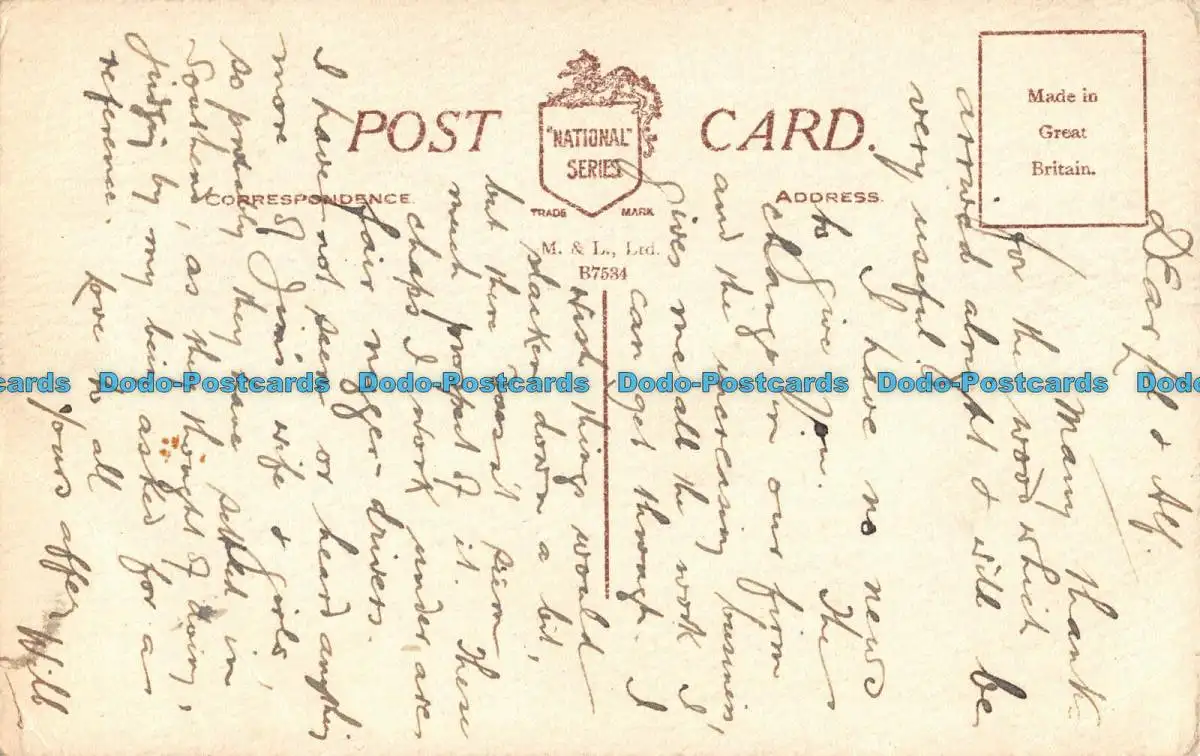 POST CARD.
"NATIONAL"
SERIES
TRADE MARK
CORRESPONDENCE.
ADDRESS.
M. & L., Ltd.
B7534
Made in
Great
Britain.
Dear & Alf.
Many thanks
for the wool which
arrived alright & will be
very useful.
I have no news
to give you. The
change in our firm
and the increasing business,
gives me all the work I
can get through. I
wish things would
slacken down a bit,
but there doesn't seem
much prospect of it. These
chaps I work under are
fair nigger-drivers.
I have not seen or heard anything
more of Jim's wife & girls,
so probably they have settled in
Southend, as they thought of doing,
judging by my being asked for a
reference.
Love to all
Yours affec
Will
Dodo-Postcards Dodo-Postcards Dodo-Postcards Dodo-Postcards Dodo-Postcards